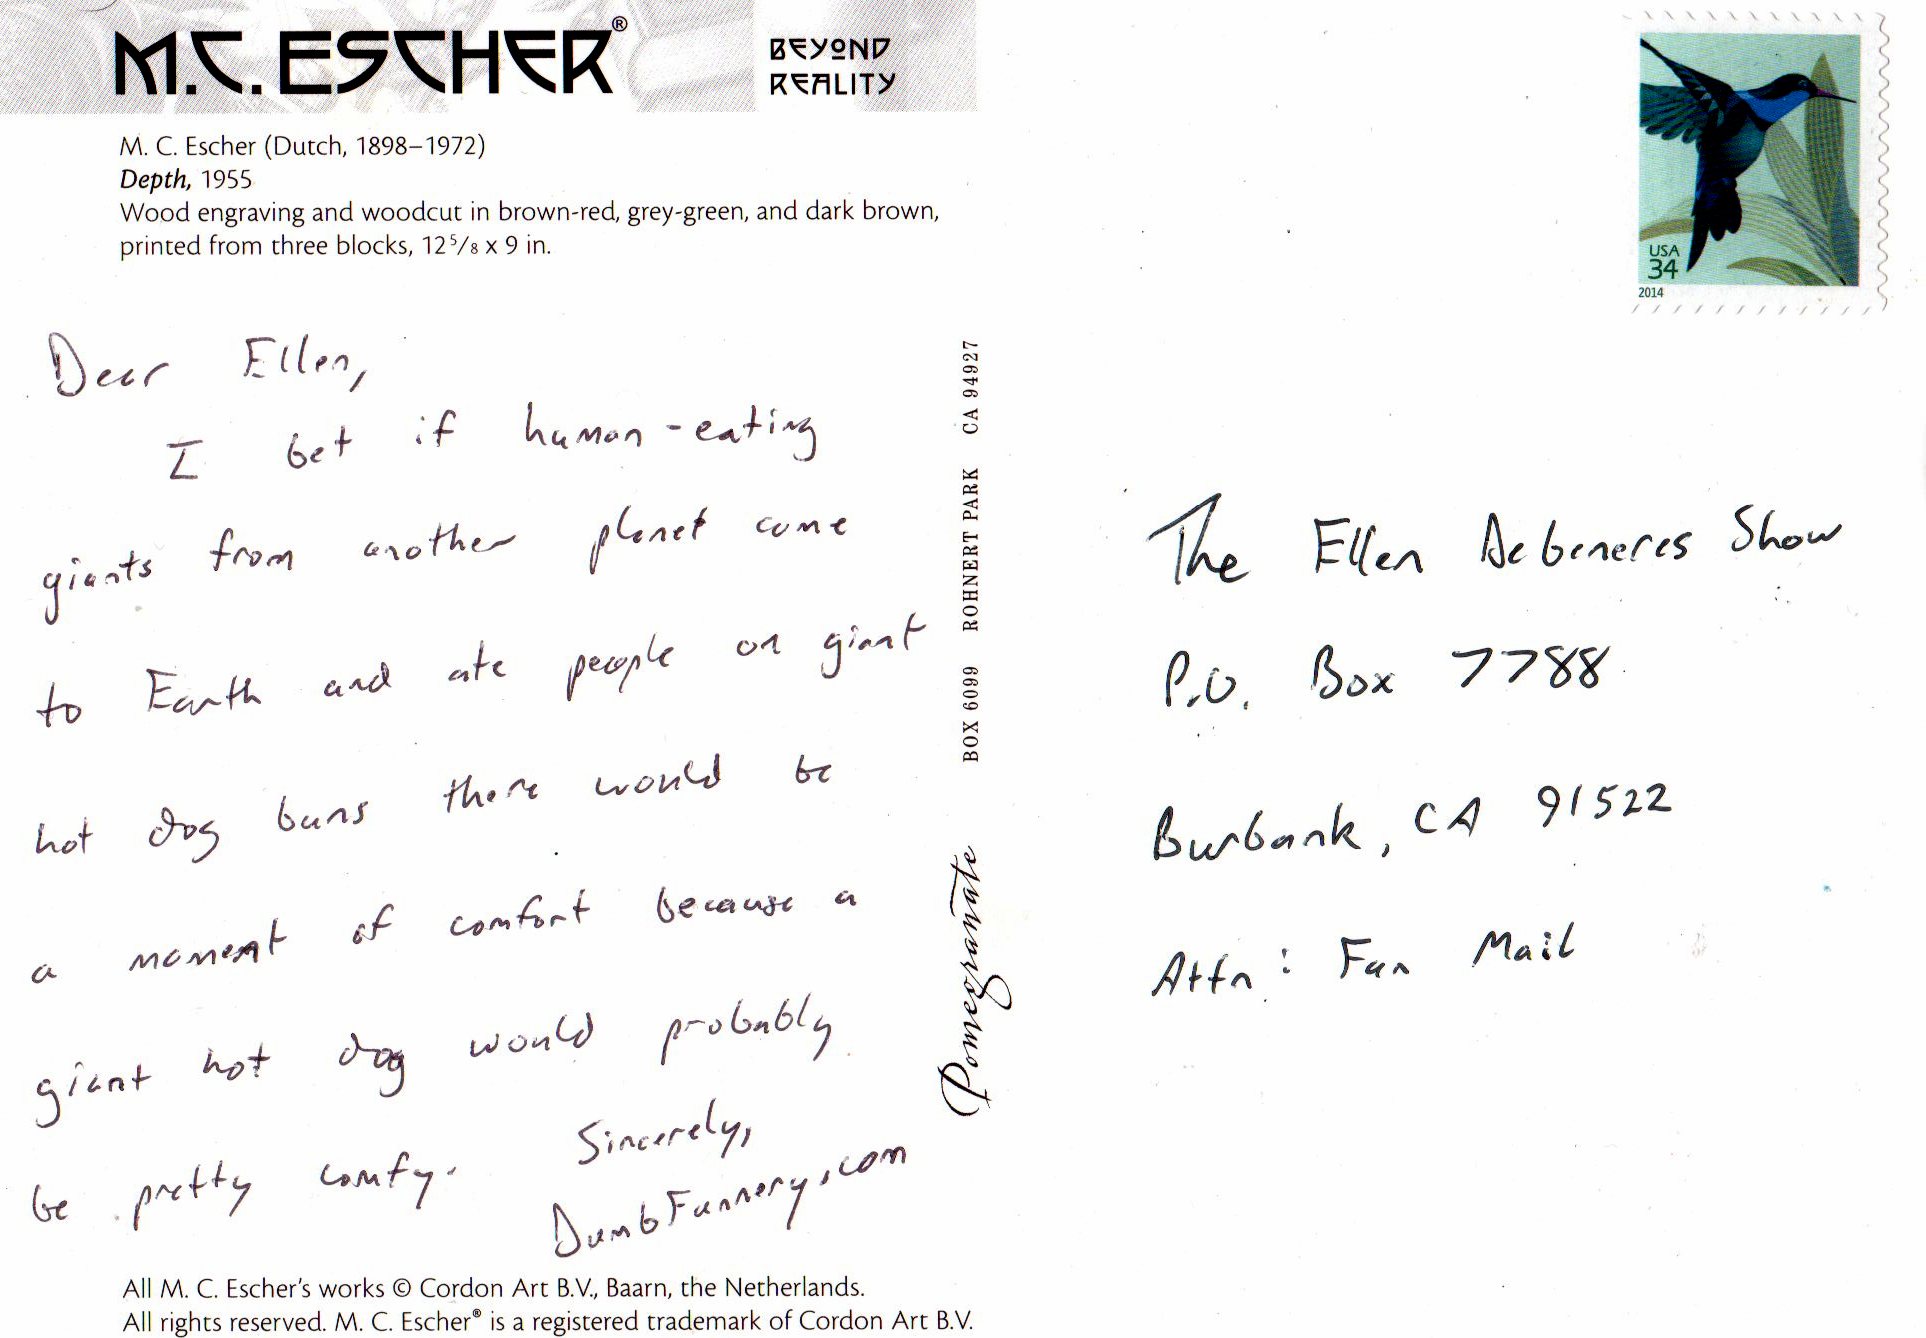 M.C. ESCHER®
BEYOND
REALITY
M. C. Escher (Dutch, 1898–1972)
Depth, 1955
Wood engraving and woodcut in brown-red, grey-green, and dark brown,
printed from three blocks, 12 5/8 x 9 in.
Dear Ellen,
I bet if human-eating
giants from another planet come
to Earth and ate people on giant
hot dog buns there would be
a moment of comfort because a
giant hot dog would probably
be pretty comfy.
Sincerely,
DumbFunnery.com
All M. C. Escher's works © Cordon Art B.V., Baarn, the Netherlands.
All rights reserved. M. C. Escher® is a registered trademark of Cordon Art B.V.
Pomegranate BOX 6099 ROHNERT PARK CA 94927
USA
34
2014
The Ellen DeGeneres Show
P.O. Box 7788
Burbank, CA 91522
Attn: Fan Mail